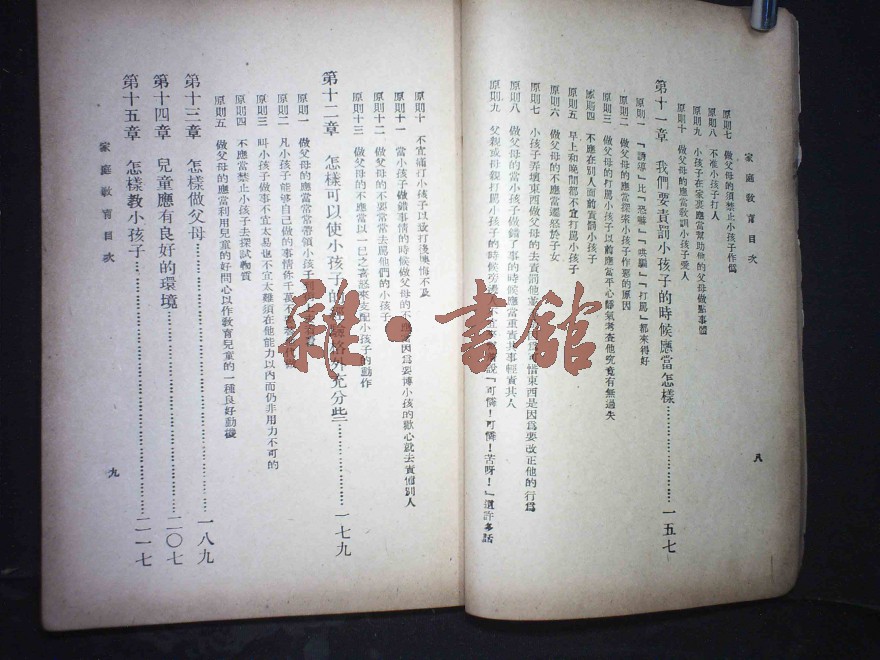 家庭教育目次
原則七　做父母的須禁止小孩子作僞
原則八　不准小孩子打人
原則九　小孩子在家裏應當幫助他的父母做點事體
原則十　做父母的應當教訓小孩子愛人
第十一章　我們要責罰小孩子的時候應當怎樣……一五七
原則一　「誘導」比「恐嚇」「哄騙」「打罵」都來得好
原則二　做父母的應當探求小孩子作惡的原因
原則三　做父母的打罵小孩子以前應當平心靜氣考查他究竟有無過失
原則四　不應在別人面前責罰小孩子
原則五　早上和晚間都不宜打罵小孩子
原則六　做父母的不應當遷怒於子女
原則七　小孩子弄壞東西做父母的去責罰他
惜東西是因爲要改正他的行爲
原則八　做父母的當小孩子做錯了事的時候應當重責其事輕責其人
原則九　父親或母親打罵小孩子的時候
說「可憐！可憐！苦呀！」這許多話
八
原則十　不宜痛打小孩子以致打後懊悔不及
原則十一　當小孩子做錯事情的時候做父母的不應當因爲要博小孩的歡心就去責備別人
原則十二　做父母的不要常常去罵他們的小孩子
原則十三　做父母的不應當以一己之喜怒來支配小孩子的動作
第十二章　怎樣可以使小孩子的經驗格外充分些……一七九
原則一　做父母的應當常常帶領小孩子
原則二　凡小孩子能够自己做的事情你千萬不
原則三　叫小孩子做事不宜太易也不宜太難須在他能力以內而仍非用力不可的
原則四　不應當禁止小孩子去探試物質
原則五　做父母的應當利用兒童的好問心以作教育兒童的一種良好動機
第十三章　怎樣做父母……一八九
第十四章　兒童應有良好的環境……二〇七
第十五章　怎樣教小孩子……二一七
家庭教育目次
九
雜·書舘